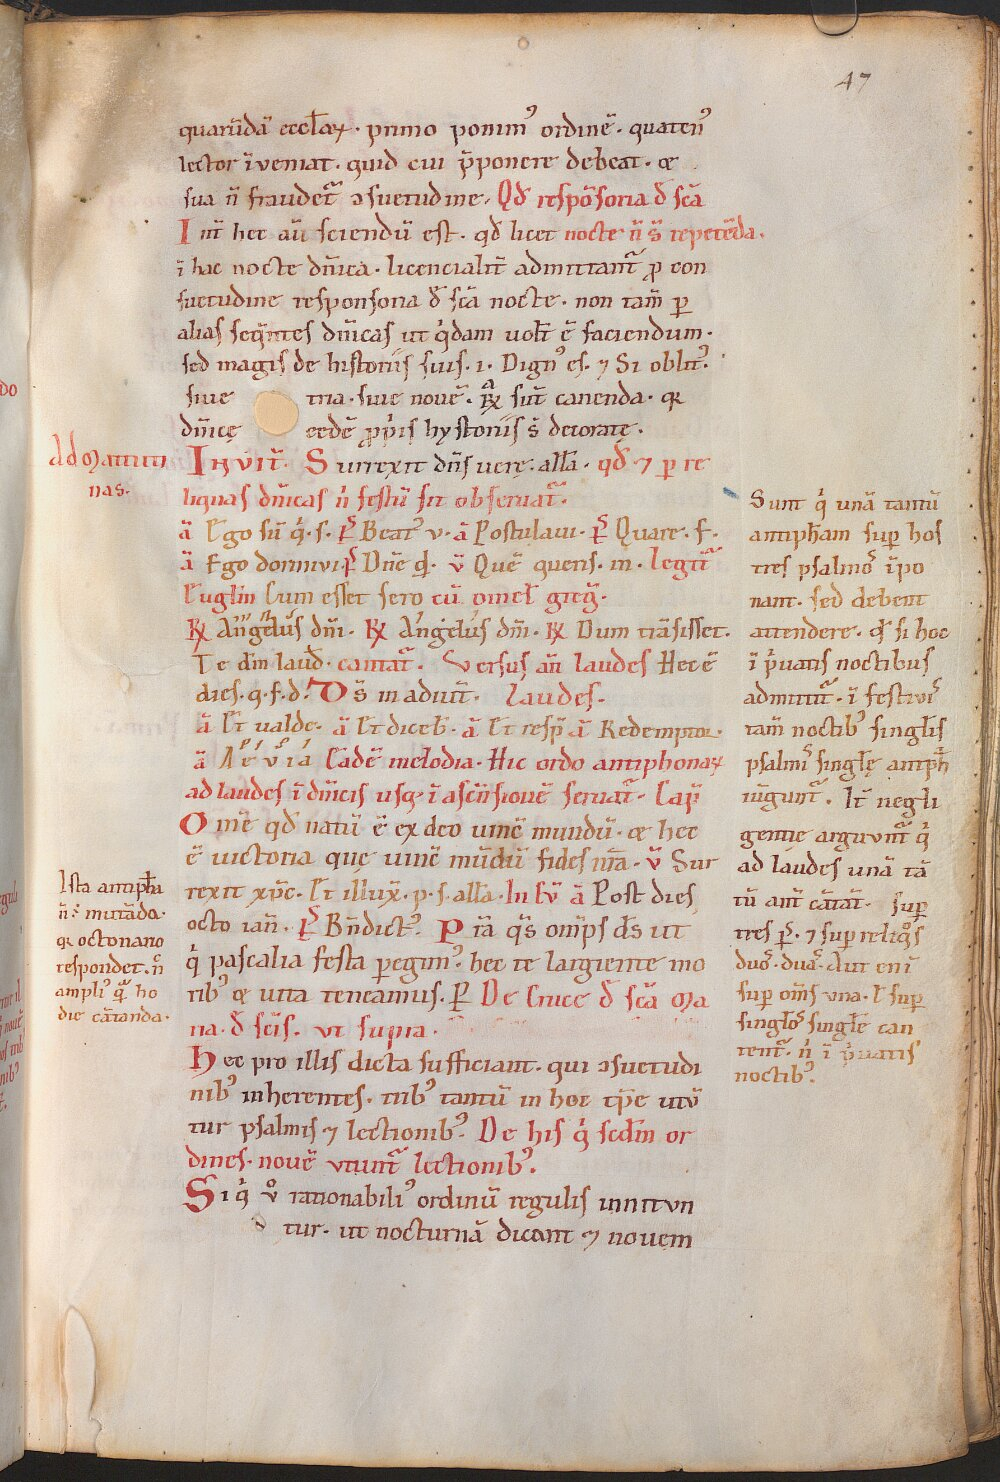 47
quarūdā eccl̄aꝝ . primo ponim᷒ ordinē . quaten᷒
lector īveniat . quid cui p̄ponere debeat . œ
sua n̄ fraudet᷑ ꝯsuetudine . Qđ respōsoria đ scā
Int̄ hec aū sciendū est . qđ licet nocte n̄ s̄ repetēda .
ī hac nocte dn̄ica . licencialit̄ admittant᷑ ꝓ con
suetudine responsoria đ scā nocte . non tam̄ ꝑ
alias seq̄ntes dn̄icas ut q̇dam uolt̄ ē faciendum .
sed magis de historiis suis . i . Dign᷒ es . ⁊ Si oblit᷒ .
siue tria . siue nouē . ℞ sūt canenda . qr
dn̄icę eedē ꝓp̄iis hystoriis s̄ decoratę .
Ad Matuti
nas .
Invit̄ . Surrexit dn̄s uere . all̄a . qđ ⁊ ꝑ re
liquas dn̄icas n̄ festū sit obseruat᷑ .
ā Ego sū q̇ . s . p̄s Beat᷒ v . ā Postulaui . p̄s Quare . f .
ā Ego dormivi . p̄s Dn̄e q̇d . v̄ Quē queris . m . legit᷑
Euglīm Cum esset sero cū omel̄ gitḡ .
℞ Angelus dn̄i . ℞ Angelus dn̄i . ℞ Dum trāsisset .
Te dīm laud̄ . cantat᷑ . Versus an̄ laudes Hec ē
dies . q . f . d . D̄s in adiut̄ . Laudes .
ā Et ualde . ā Et diceb̄ . ā Et resp̄ ā Redemptor .
ā Aevia Eadē melodia . Hic ordo antiphonaꝝ
ad laudes ī dn̄icis usq; ī ascēsionē seruat᷑ . Cap̄
Om̄e qđ natū ē ex deo uinc̄ mundū . œ hec
ē uictoria que uinc̄ mūdū fides nr̄a . v̄ Sur
rexit xp̄c . Et illux̄ . p . s . all̄a . In ev̄ ā Post dies
octo ian̄ . p̄s Bn̄dict᷒ . Pr̄a q̄s om̄ps d̄s ut
q̇ pascalia festa ꝑegim᷒ . hec te largiente mo
rib᷒ œ uita teneamus . ꝑ De Cruce đ scā Ma
na . đ sc̄is . vt supra .
Hec pro illis dicta sufficiant . qui ꝯsuetudi
nib᷒ inherentes . trib᷒ tantū in hoc tp̄e utū
tur psalmis ⁊ lectionib᷒ . De his q̇ scd̄m or
dines . nouē utunt᷑ lectionib᷒ .
Si q̇ v̊ rationabili᷒ ordinū regulis innitun
tur . ut nocturnā dicant ⁊ nouem
Ista antiph̄a
n̄ ē mutāda .
qr octonario
respondet . n̄
ampli᷒ q̄ ho
die cātanda .
Sunt q̇ unā tantū
antiph̄am sup̄ hos
tres psalmos īpo
nant . sed debent
attendere . qđ si hoc
ī ṗuatis noctibus
admittit᷑ . ī festiuis
tam̄ noctib᷒ singlis
psalmis singlę antiph̄
iūgunt᷑ . It̄ negli
gentie arguunt᷑ q̇
ad laudes unā tā
tū ant̄ cātāt . sup̄
tres p̄s . ⁊ sup̄ reliq̊s
duos . duā . Aut eni
sup̄ om̄s una . l̄ sup̄
singlos singlę can
tent᷑ . n̄ ī ṗuatis
noctib᷒ .